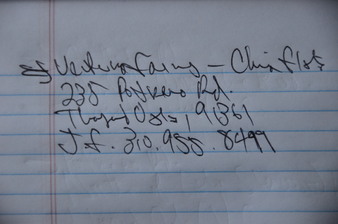 Ventura Farms - China Flats
235 Potrero Rd.
Thousand Oaks, 91361
J.F. 310.955.8499